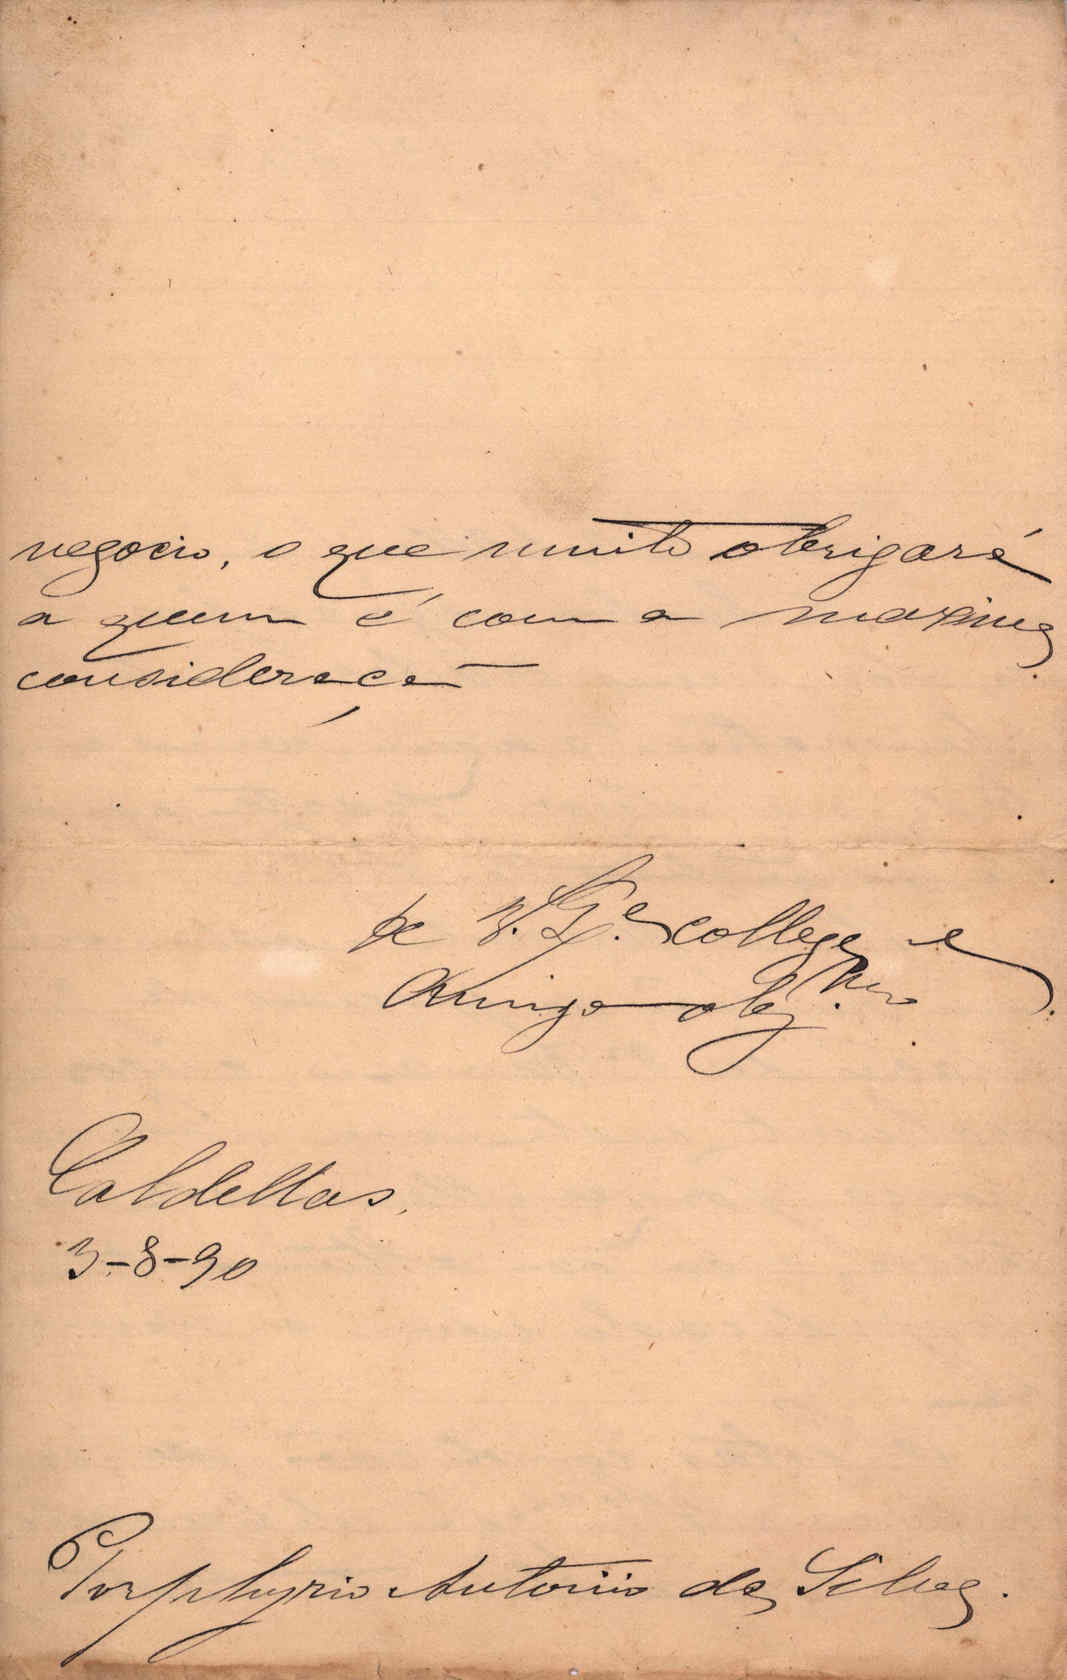 negocio, o que muito obrigará
a quem é com a maxima
consideração
de V. S.ª collega e
Amigo obg.mo
Caldellas,
3-8-90
Porphyrio Antonio da Silva.